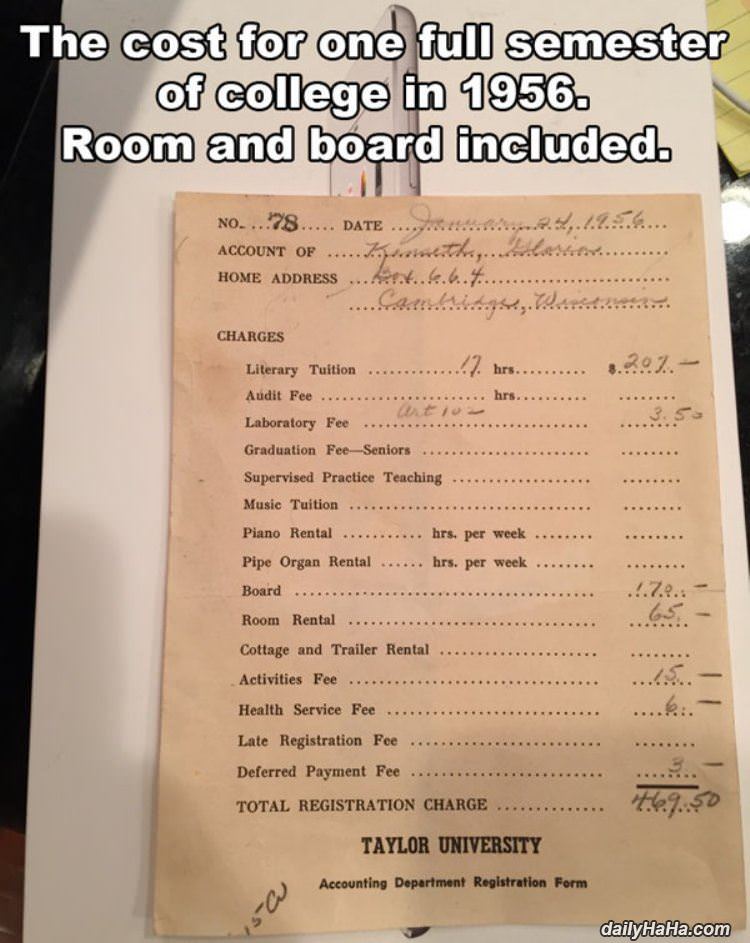 The cost for one full semester
of college in 1956.
Room and board included.
NO. ...78..... DATE ....January 24, 1956....
ACCOUNT OF .....Kenneth, Gloria..........
HOME ADDRESS ...Box 664..............
....Cambridge, Wisconsin
CHARGES
Literary Tuition .............17 hrs.......... $ 207.—
Audit Fee ........................ hrs.......... ........
Laboratory Fee ....Art 10—.................... ....3.50
Graduation Fee—Seniors ........................ ........
Supervised Practice Teaching .................... ........
Music Tuition .................................. ........
Piano Rental ........... hrs. per week ........ ........
Pipe Organ Rental ...... hrs. per week ........ ........
Board .......................................... .170.—
Room Rental .................................. 65.—
Cottage and Trailer Rental ...................... ........
Activities Fee .................................. ...15.—
Health Service Fee .............................. ....6.—
Late Registration Fee .......................... ........
Deferred Payment Fee .......................... 3.—
TOTAL REGISTRATION CHARGE .............. 469.50
TAYLOR UNIVERSITY
Accounting Department Registration Form
15W
dailyHaHa.com